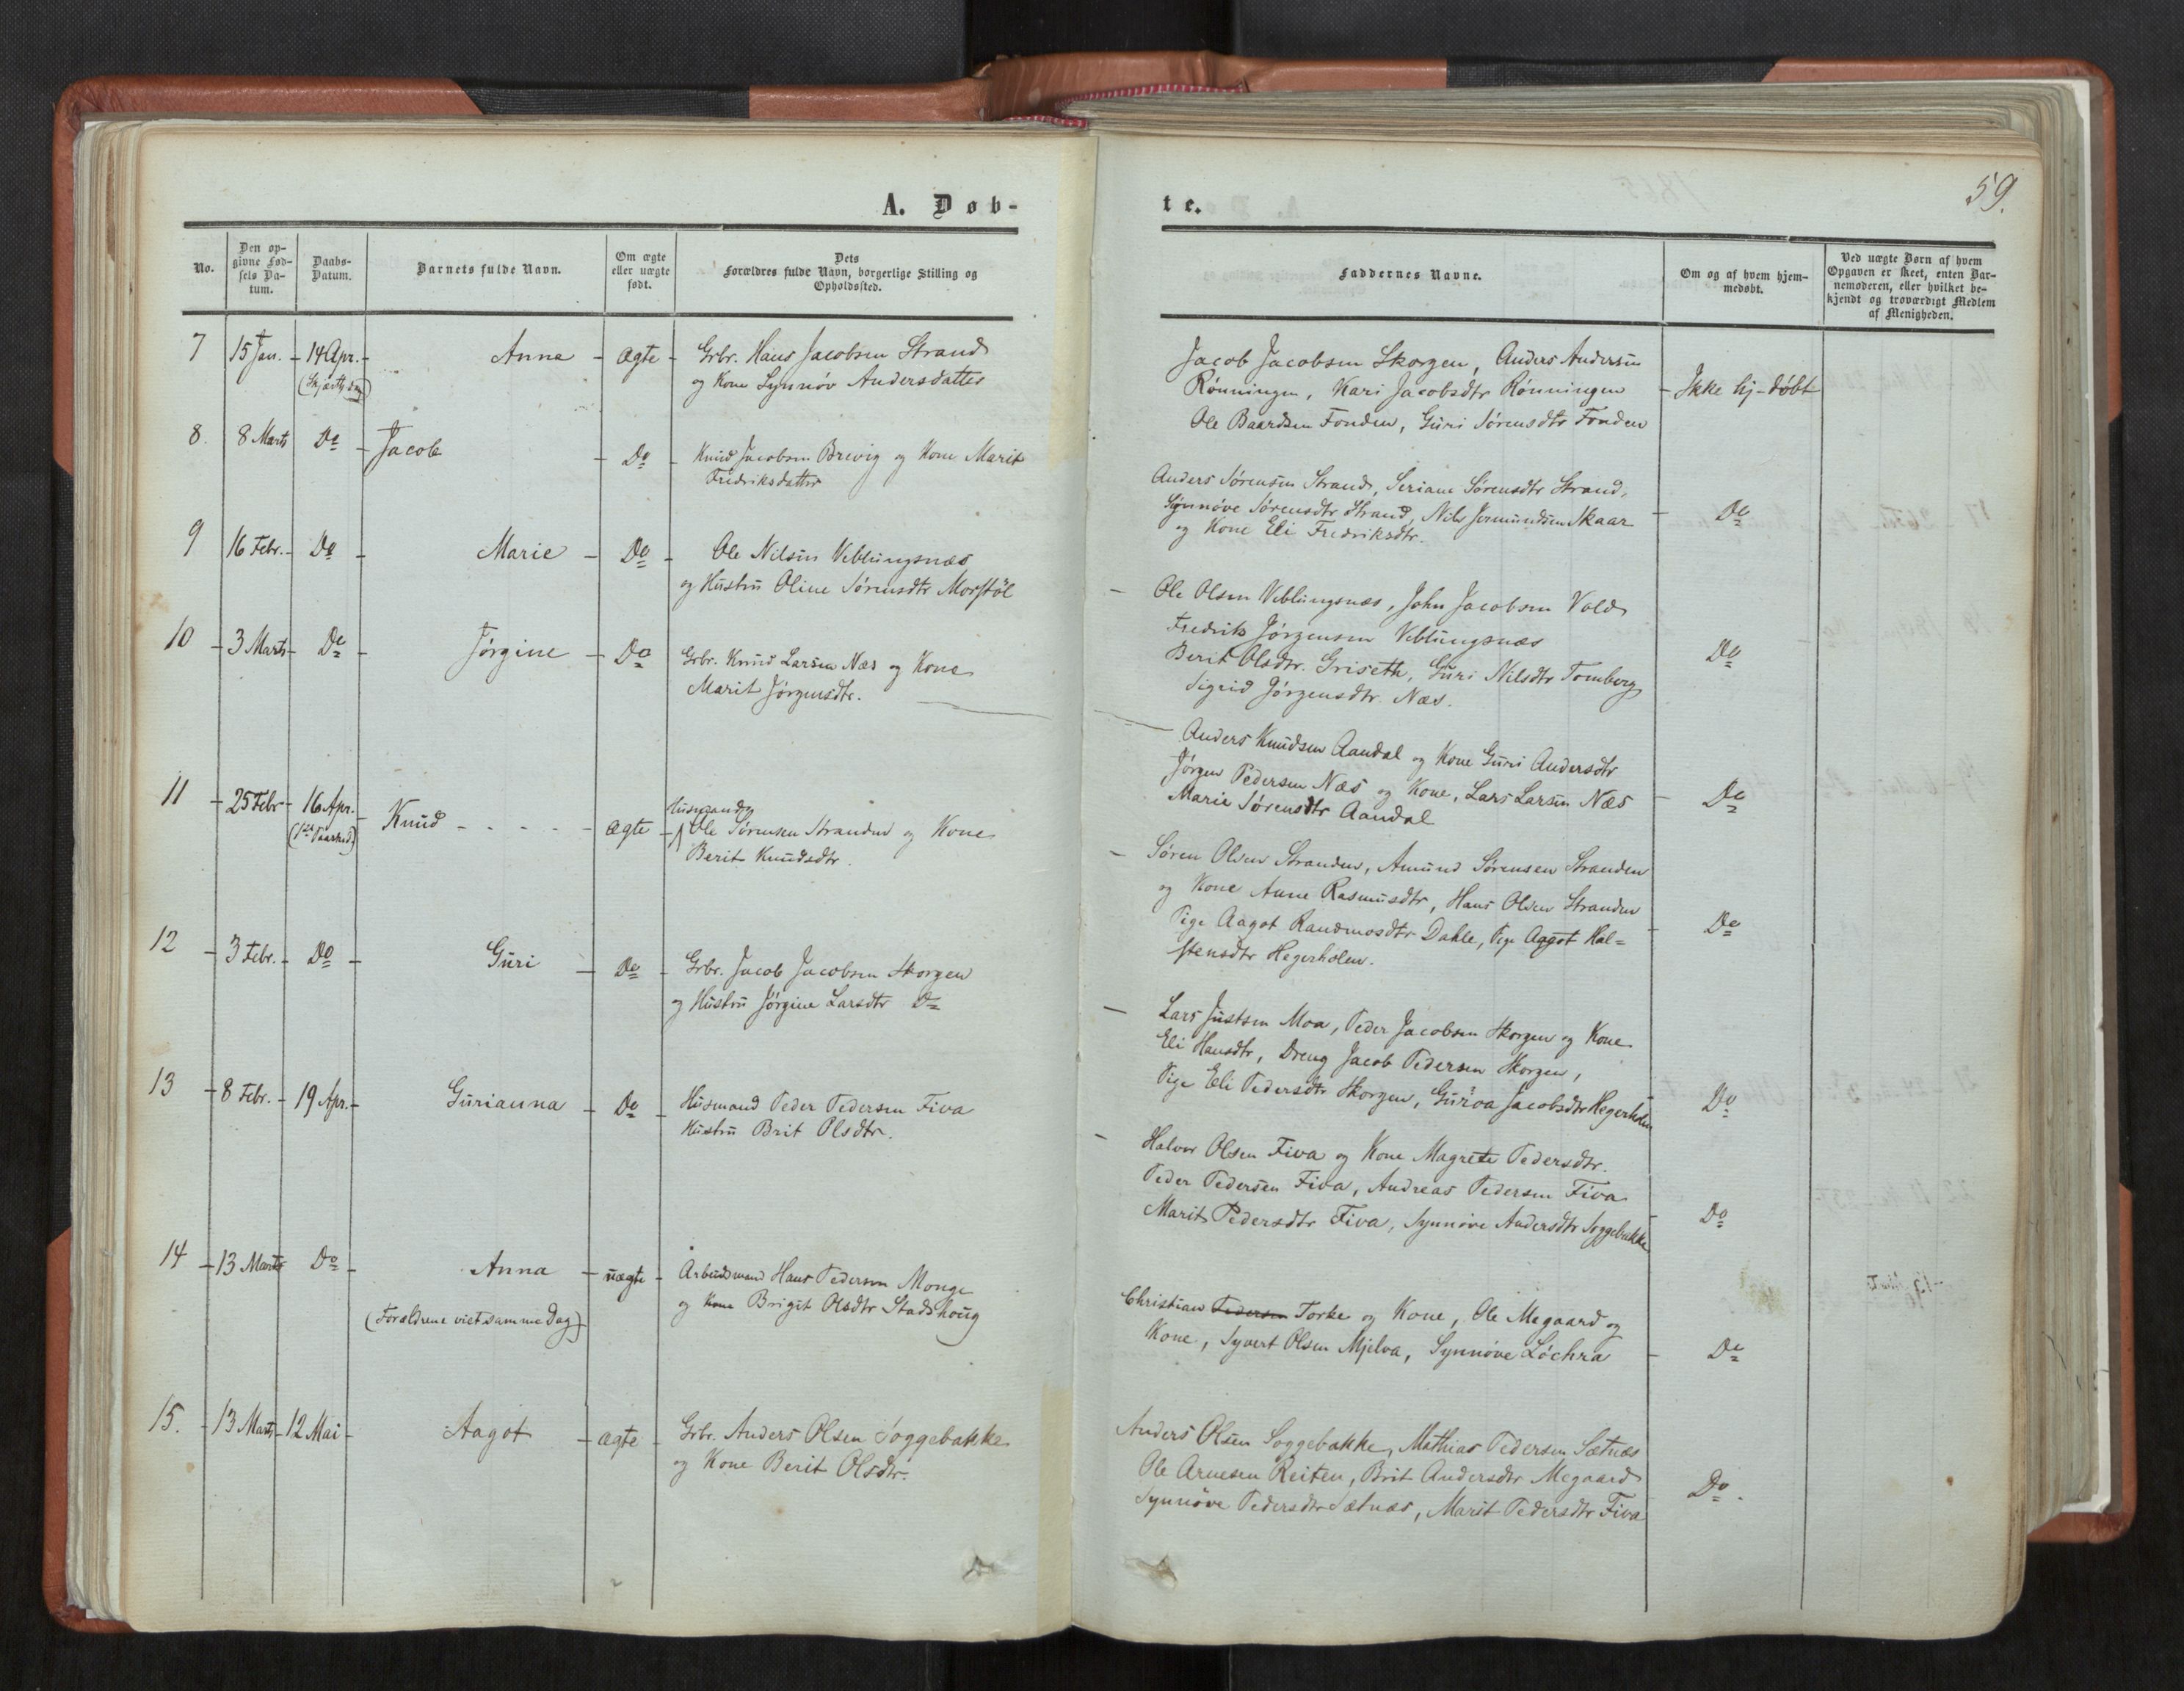 A. Døb-
No.
Den op-
givne Fød-
sels Da-
tum.
Daabs-
Datum.
Barnets fulde Navn.
Om ægte
eller uægte
født.
Dets
Forældres fulde Navn, borgerlige Stilling og
Opholdssted.
7 15 Jan. - 14 Apr. - Anna - ægte - Grbr. Hans Jacobsen Strand
(Skjærtsdag) og Kone Synnøv Andersdatter
8. 8 Marts Do - Jacob - Do - Knud Jacobsen Brevig og Kone Marit
Fredriksdatter
9 16 Febr. - Do - Marie - Do - Ole Nilsen Veblungsnæs
og Hustru Oline Sørensdtr Morstøl
10 - 3 Marts - Do - Jørgine - Do Grbr. Knud Larsen Næs og Kone
Marit Jørgensdtr.
11 - 25 Febr - 16 Apr. - Knud - - - - - ægte - Husmand
Ole Sørensen Stranden og Kone
Berit Knudsdtr.
12 - 3 Febr. - Do - Guri - Do - Grbr. Jacob Jacobsen Skorgen
og Hustru Jørgine Larsdtr Do
13 - 8 Febr. - 19 Apr. - Gurianna - Do - Husmand Peder Pedersen Fiva
Hustru Brit Olsdtr.
14 - 13 Marts Do - Anna - uægte - Arbeidsmand Hans Pedersen Monge
og Kone Brigit Olsdtr Stadshoug
(Forældrene viet samme Dag)
15. - 13 Marts - 12 Mai - Aagot - ægte - Grbr. Anders Olsen Soggebakke
og Kone Berit Olsdtr.
te.
59.
Faddernes Navne.
Om og af hvem hjem-
medøbt.
Ved uægte Børn af hvem
Opgaven er skeet, enten Bar-
nemoderen, eller hvilket be-
kjendt og troværdigt Medlem
af Menigheden.
Jacob Jacobsen Skorgen, Anders Andersen
Rønningen, Kari Jacobsdtr Rønningen - Ikke hj-døbt
Ole Baardsen Fonden, Guri Sørensdtr Fonden
Anders Sørensen Strand, Seriane Sørensdtr Strand,
Synnøve Sørensdtr Strand, Nils Jermundsen Skaar - Do
og Kone Eli Fredriksdtr.
- Ole Olsen Veblungsnæs, John Jacobsen Vold
Fredrik Jørgensen Veblungsnæs
Berit Olsdtr. Griseth, Guri Nilsdtr Tomberg Do
Sigrid Jørgensdtr. Næs.
- Anders Knudsen Aandal og Kone Guri Andersdtr
Jørgen Pedersen Næs og Kone, Lars Larsen Næs - Do
Marie Sørensdtr Aandal
- Søren Olsen Stranden, Amund Sørensen Stranden
og Kone Anne Rasmusdtr, Hans Olsen Stranden
Pige Aagot Randmosdtr Dahle, Pige Aagot Hal= - Do
stensdtr Hegerholen.
- Lars Justsen Moa, Peder Jacobsen Skorgen og Kone
Eli Hansdtr, Dreng Jacob Pedersen Skorgen,
Pige Eli Pedersdtr Skorgen, Guroa Jacobsdtr Hegerholen - Do
- Halvor Olsen Fiva og Kone Magrete Pedersdtr.
Peder Pedersen Fiva, Andreas Pedersen Fiva
Marit Pedersdtr Fiva, Synnøve Andersdtr Soggebakke - Do
Christian Pedersen Torke og Kone, Ole Megaard og
Kone, Syvert Olsen Mjelva, Synnøve Løchra - Do
Anders Olsen Soggebakke, Mathias Pedersen Sætnæs
Ole Arnesen Reiten, Brit Andersdtr Megaard - Do.
Synnøve Pedersdtr Sætnæs, Marit Pedersdtr Fiva